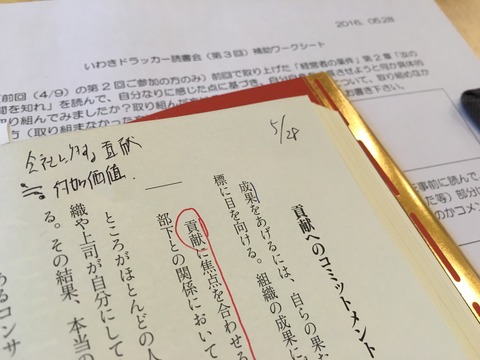 2016. 05.28
いわきドラッカー読書会（第３回）補助ワークシート
前回（4/9）の第２回ご参加の方のみ）前回で取り上げた「経営者の条件」第２章「汝の
間を知れ」を読んで、自分なりに感じた点に基づき、
り組んでみましたか？
（取り組まなかった
について、取り組むなか
お書き下さい。
事前に読んで、
た等）部分に
のかコメン
5/28
会社に対する貢献
≒ 付加価値.
貢献へのコミットメント
成果をあげるには、自らの果
標に目を向ける。組織の成果に
貢献に焦点を合わせる
部下との関係において
ところがほとんどの人
織や上司が自分にして
る。その結果、本当の
あるコンサ